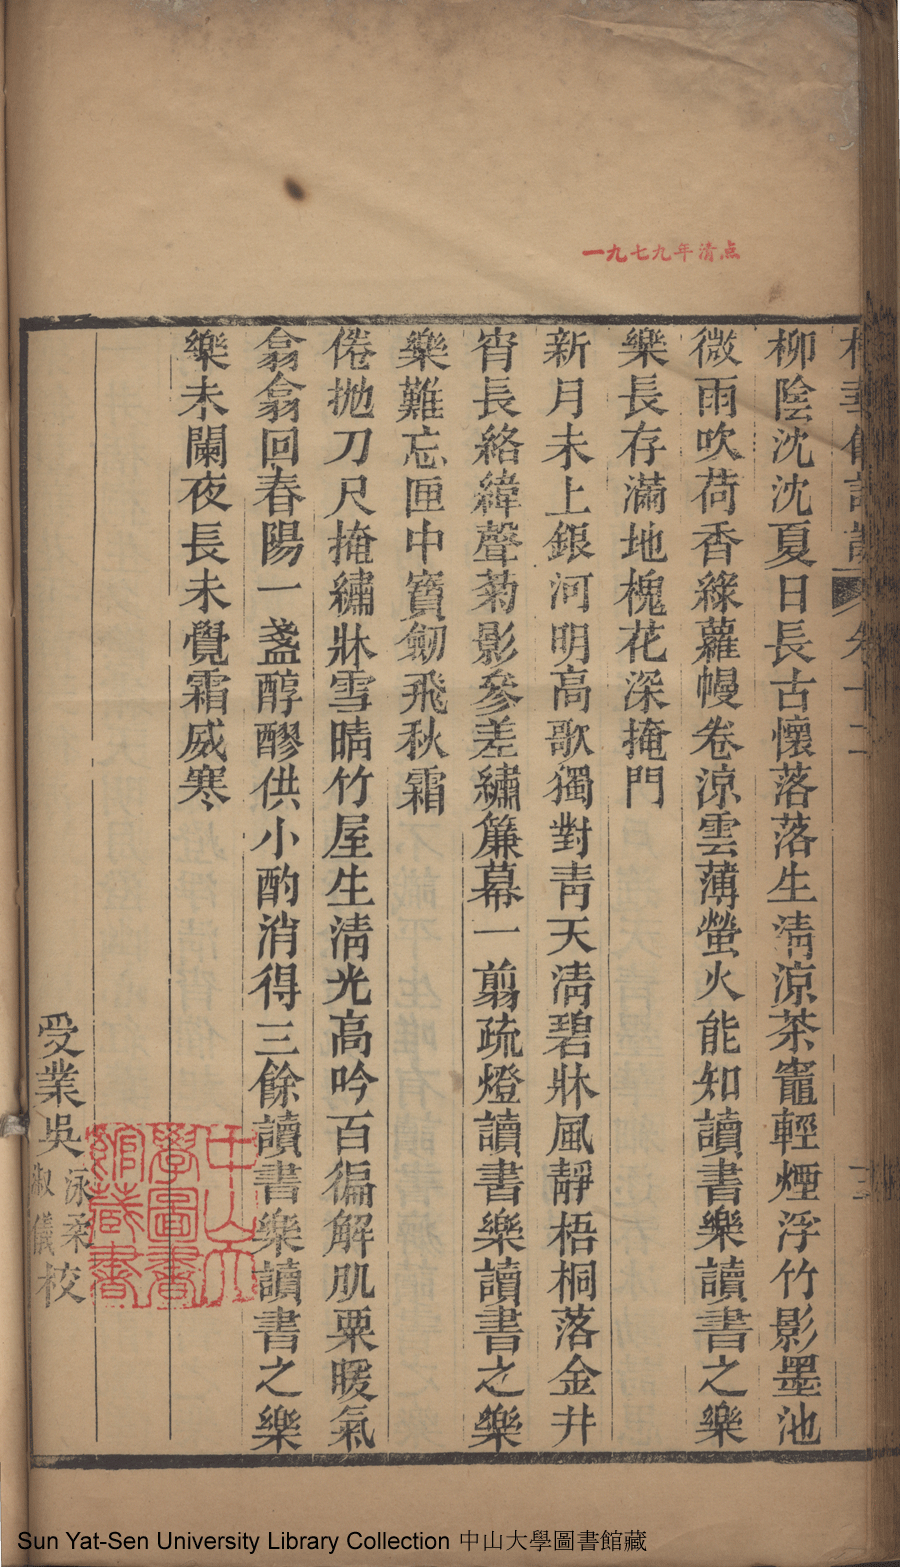 一九七九年清点
柳陰沈沈夏日長古懷落落生清涼茶竈輕煙浮竹影墨池
微雨吹荷香綠蘿幔卷涼雲薄螢火能知讀書樂讀書之樂
樂長存滿地槐花深掩門
新月未上銀河明高歌獨對靑天淸碧牀風靜梧桐落金井
宵長絡緯聲菊影參差繡簾幕一翦疏燈讀書樂讀書之樂
樂難忘匣中寶劒飛秋霜
倦拋刀尺掩繡牀雪晴竹屋生清光高吟百徧解肌粟暖氣
翕翕回春陽一盞醇醪供小酌消得三餘讀書樂讀書之樂
樂未闌夜長未覺霜威寒
受業吳
泳柔
淑儀
校
中山大
學圖書
館藏書
Sun Yat-Sen University Library Collection 中山大學圖書館藏